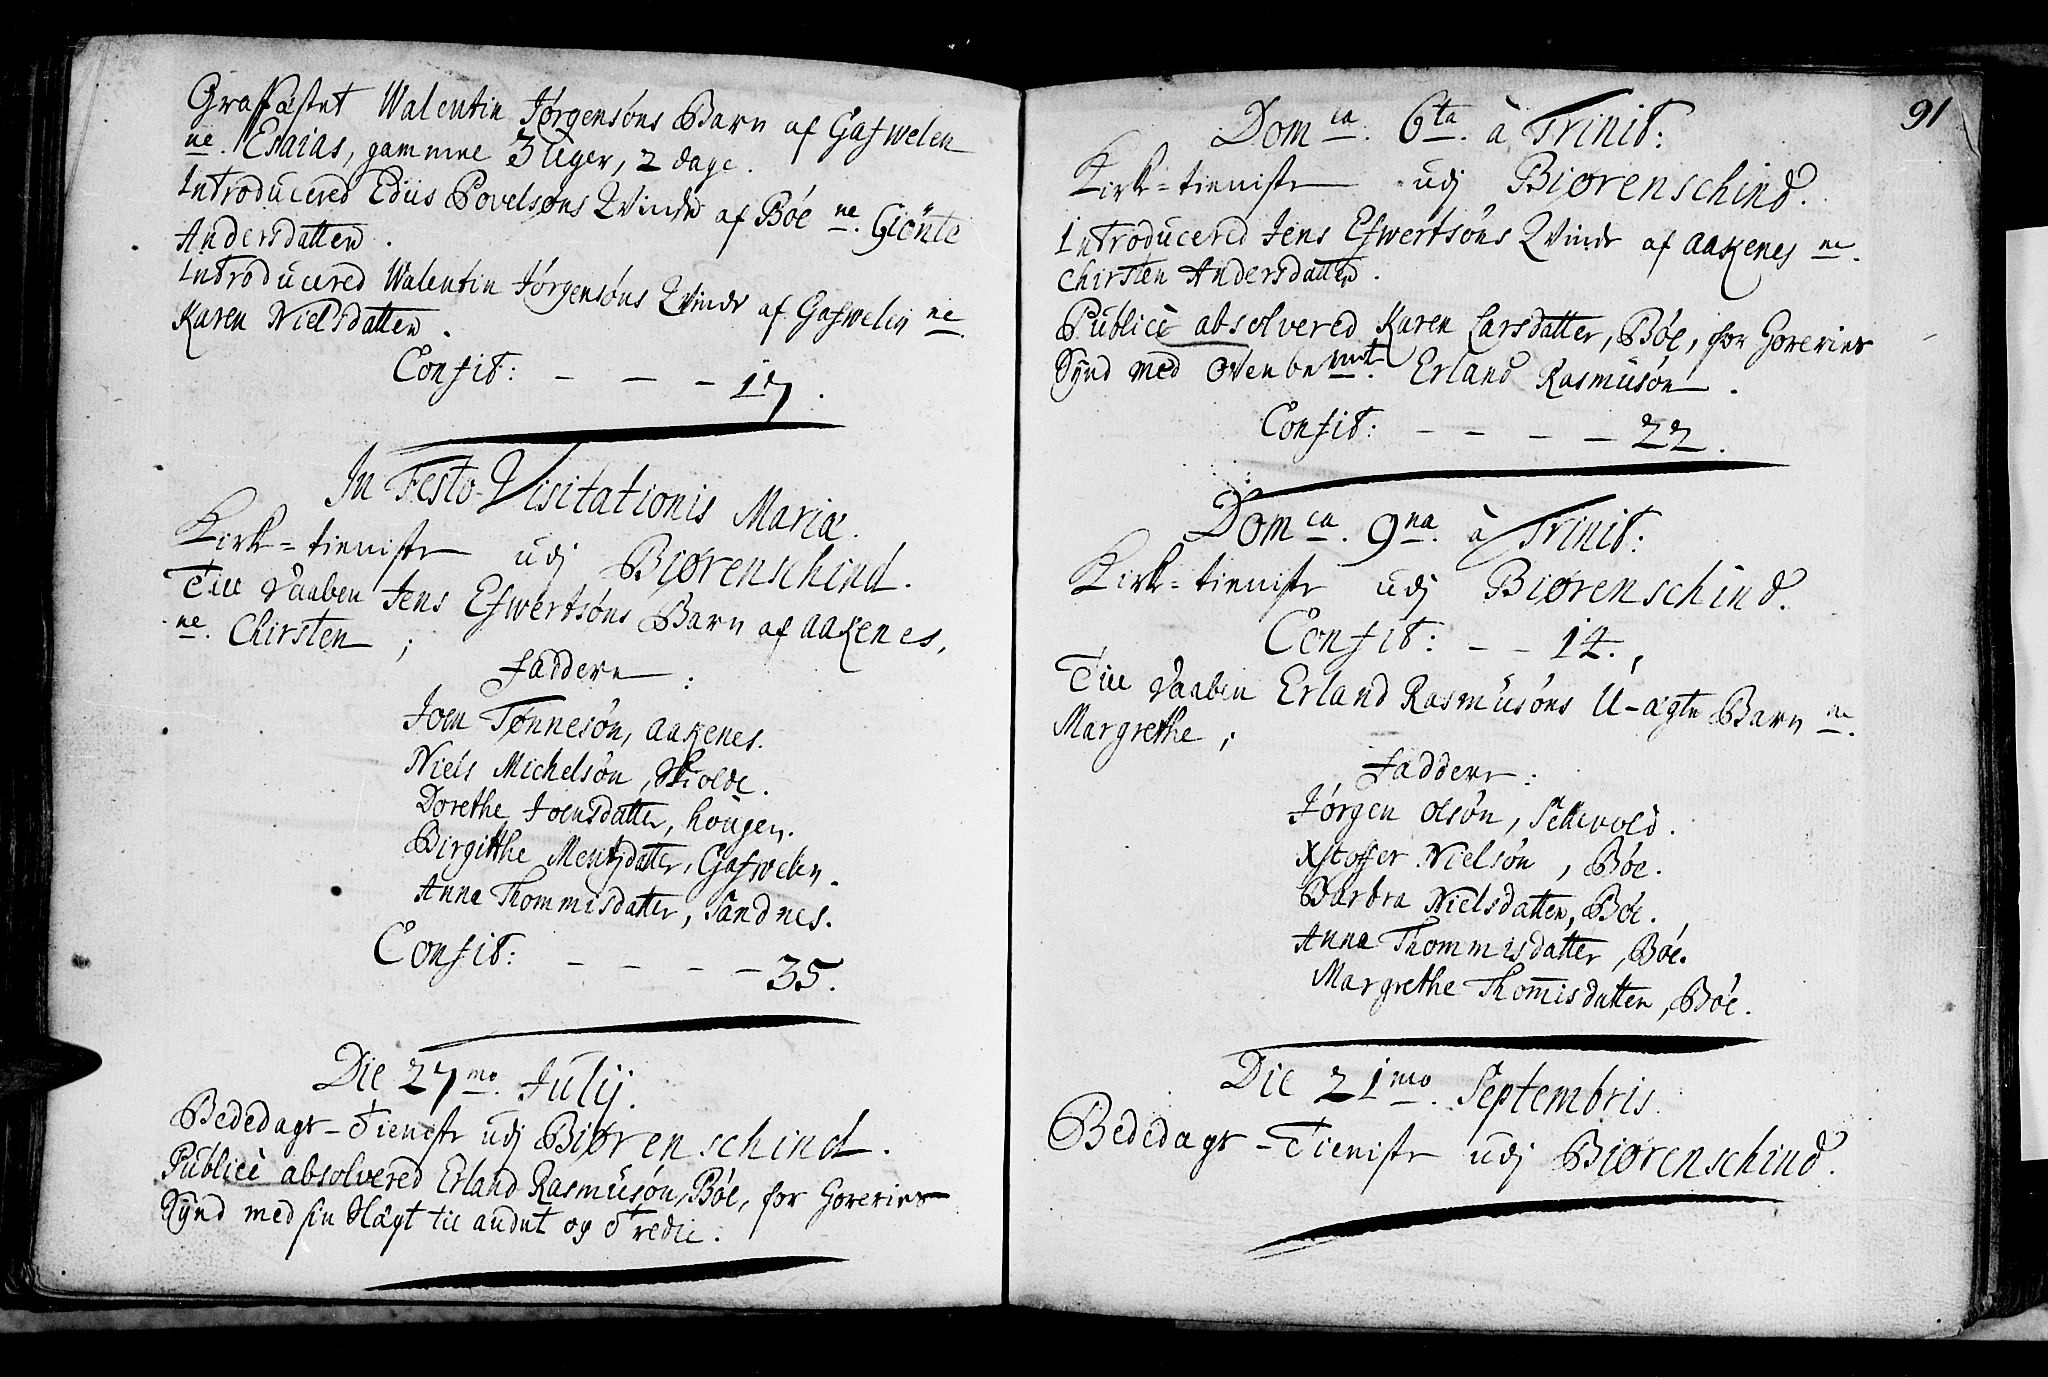 Graffæstet Walentin Jørgensøns Barn af Gafwelen
ne. Esaias, gammel 3 Uger, 2 dage.
Introducered Ediis Povelsøns Qvinde af Bøe ne. Giønte
Andersdatter.
Introducered Walentin Jørgensøns Qvinde af Gafwelen ne.
Karen Nielsdatter.
Confit: – – – 17.
In Festo Visitationis Mariæ.
Kirk=tieniste udj Biørenschind.
Till Daaben Jens Efwertsøns Barn af Aakenes,
ne. Chirsten;
Faddere:
Joen Tønnesøn, Aakenes.
Niels Michelsøn, Skolde.
Dorethe Joensdatter, Hougen.
Birgitthe Mentzdatter, Gafwelen.
Anna Thommisdatter, Sandnes.
Confit: – – – – 35.
Die 27mo. Julij.
Bededags-Tieniste udj Biørenschind.
Publicè absolvered Erland Rasmusøn, Bøe, for Horeries
Synd med sin Slægt til andet og Tredie.
91
Domca. 6ta. à Trinit:
Kirk=tieniste udj Biørenschind.
Introducered Jens Efwertsøns Qvinde af Aakenes ne.
Chirsten Andersdatter.
Publicè absolvered Karen Larsdatter, Bøe, for Horeries
Synd med ovenbemt. Erland Rasmusøn.
Confit: – – – – 22.
Domca. 9na. à Trinit:
Kirk=tieniste udj Biørenschind.
Confit: – – 14.
Till Daaben Erland Rasmusøns U-ægte Barn ne.
Margrethe;
Faddere:
Jørgen Olsøn, Sellevold.
Xstoffer Nielsøn, Bøe.
Barbra Nielsdatter, Bøe.
Anna Thommisdatter, Bøe.
Margrethe Thom̄isdatter, Bøe.
Die 21mo. Septembris.
Bededags-Tieniste udj Biørenschind.